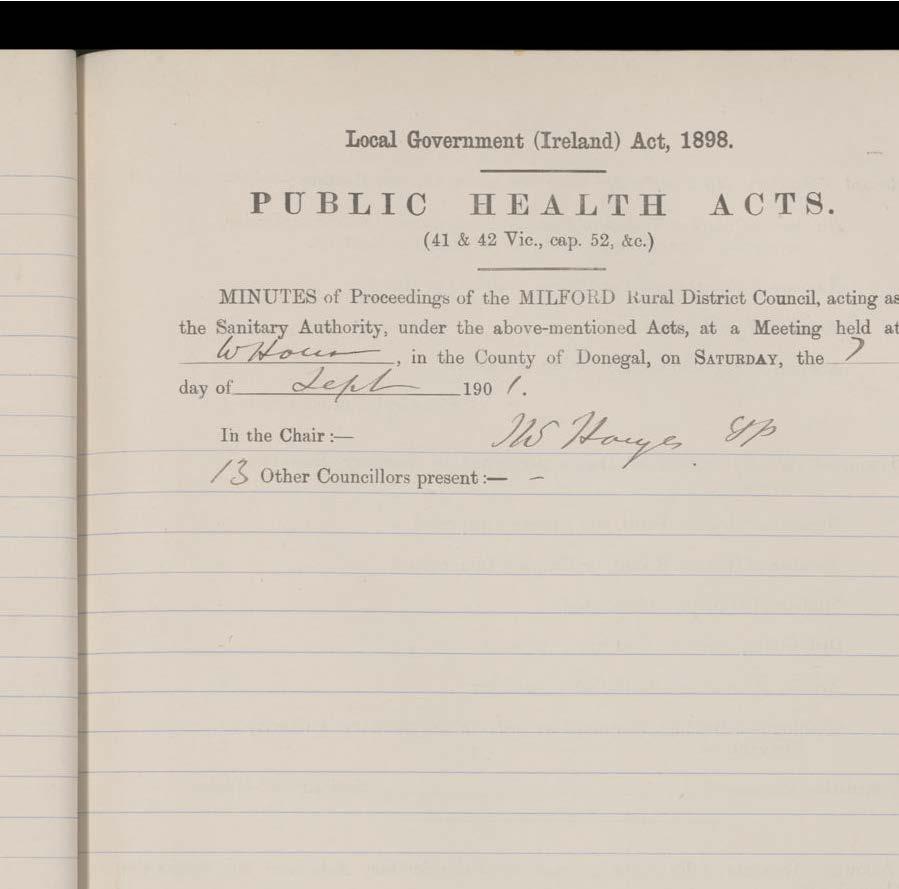 Local Government (Ireland) Act, 1898.
PUBLIC HEALTH ACTS.
(41 & 42 Vic., cap. 52, &c.)
MINUTES of Proceedings of the MILFORD Rural District Council, acting as
the Sanitary Authority, under the above-mentioned Acts, at a Meeting held at
W House, in the County of Donegal, on SATURDAY, the 7
day of Sept 1901.
In the Chair :— JP
13 Other Councillors present :— –